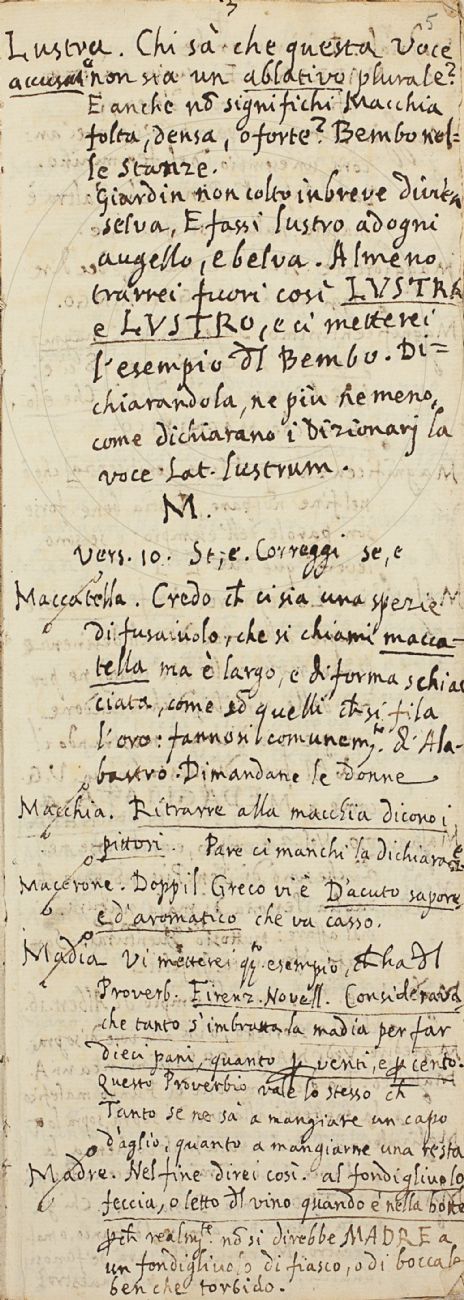 3
5
Lustra. Chi sà che questa voce
accusat.o non sia un ablativo plurale?
E anche nõ significhi Macchia
folta, densa, o forte? Bembo nel=
le Stanze.
Giardin non colto in breve divien
selva, E fassi lustro ad ogni
augello, e belva. Almeno
trarrei fuori così LVSTRA
e LVSTRO, e ci metterei
l'esempio dl Bembo. Di=
chiarandola, ne più ne meno,
come dichiarano i Dizionarj la
voce Lat. lustrum.
M.
Vers. 10. St; e. Correggi se, e
Maccatella. Credo ch ci sia una spezie
di fusaiuolo, che si chiami macca-
tella ma è largo, e di forma schiac
ciata, come sõ quelli ch si fila
l'oro: fannosi comunem.te d'Ala-
bastro. Dimandane le donne
Macchia. Ritrarre alla macchia dicono i
pittori. Pare ci manchi la dichiaraz.e
Macerone. Dopp il Greco vi è D'acuto sapore
e d'aromatico che va casso.
Madia Vi metterei q.to esempio, ch ha dl
Proverb. Firenz. Novell. Considerava
che tanto s'imbratta la madia per far
dieci pani, quanto p venti, e p cento.
Questo Proverbio vale lo stesso ch
Tanto se ne sa a mangiare un capo
d'aglio, quanto a mangiarne una resta
Madre. Nel fine direi così. al fondigliuolo
feccia, o letto dl vino quando è nella botte
pch realm.te nõ si direbbe MADRE a
un fondigliuolo di fiasco, o di boccale
ben che torbido.